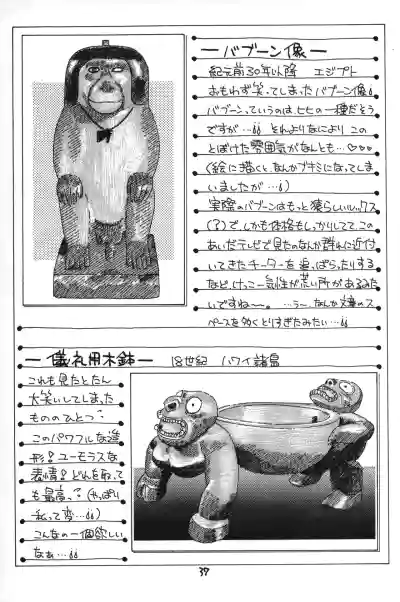 ― バブーン像 ―
紀元前30年以降 エジプト
おもわず笑ってしまったバブーン像!
バブーンっていうのは、ヒヒの一種だそう
ですが…!! それよりなにより この
とぼけた雰囲気がなんとも…♡♡♡
(絵に描くと、なんかブキミになってしま
いましたが…!)
実際のバブーンはもっと猿らしいルックス
(?)で、しかも体格もしっかりしてて この
あいだテレビで見たのなんか 群れに近付
いてきたチーターを 追っぱらったりする
など、けっこー気性が荒い所があるみた
いですね〜〜。 …う〜、なんか文章のス
ペースを効くとりすぎたみたい…!!
― 儀礼用木鉢 ― 18世紀 ハワイ諸島
これも見たとたん
大笑いしてしまった
もののひとつ?
このパワフルな造
形! ユーモラスな
表情! どれを取って
も最高っ? (やっぱり
私って変…!!)
こんなの一個欲しい
なぁ…!!
37